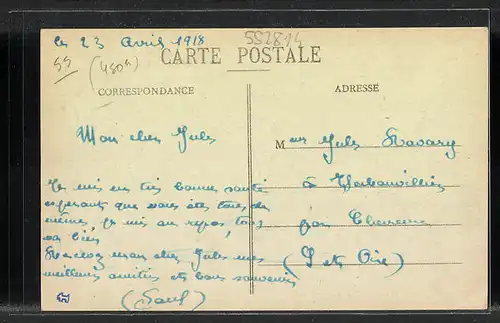 le 23 Avril 1918
552814
55
(480h)
CARTE POSTALE
CORRESPONDANCE
ADRESSE
Mon cher Jules
Mr Jules Havary
Je suis en très bonne santé
à
esperant que vous êtes tous de
par
mêmes. Je suis au repos, tous
va bien
Recevez mon cher Jules mes
(S et Oise)
meilleurs amitiés et bons souvenirs